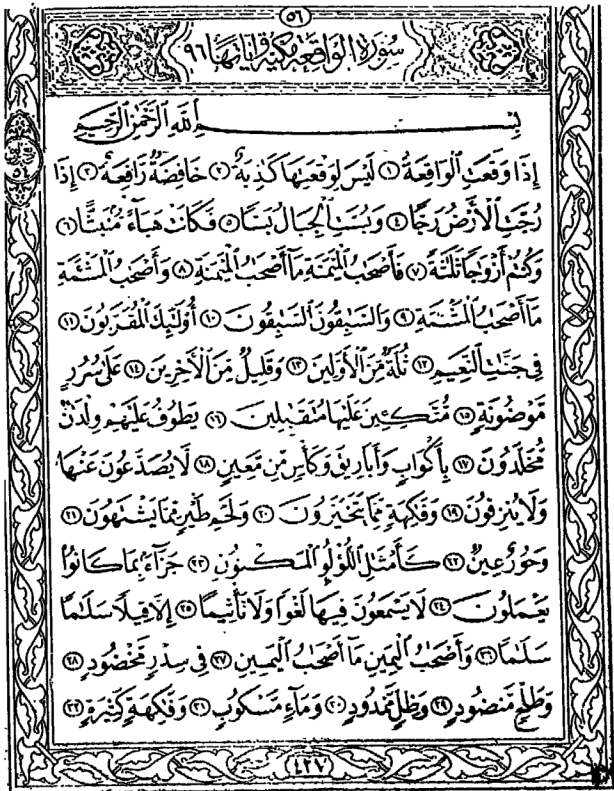 ٥٦
سورة الواقعة مكية وآياتها ٩٦
بِسْمِ ٱللَّهِ ٱلرَّحْمَٰنِ ٱلرَّحِيمِ
إِذَا وَقَعَتِ ٱلْوَاقِعَةُ ١ لَيْسَ لِوَقْعَتِهَا كَاذِبَةٌ ٢ خَافِضَةٌ رَّافِعَةٌ ٣ إِذَا
رُجَّتِ ٱلْأَرْضُ رَجًّا ٤ وَبُسَّتِ ٱلْجِبَالُ بَسًّا ٥ فَكَانَتْ هَبَآءً مُّنۢبَثًّا ٦
وَكُنتُمْ أَزْوَٰجًا ثَلَٰثَةً ٧ فَأَصْحَٰبُ ٱلْمَيْمَنَةِ مَآ أَصْحَٰبُ ٱلْمَيْمَنَةِ ٨ وَأَصْحَٰبُ ٱلْمَشْـَٔمَةِ
مَآ أَصْحَٰبُ ٱلْمَشْـَٔمَةِ ٩ وَٱلسَّٰبِقُونَ ٱلسَّٰبِقُونَ ١٠ أُو۟لَٰٓئِكَ ٱلْمُقَرَّبُونَ ١١
فِى جَنَّٰتِ ٱلنَّعِيمِ ١٢ ثُلَّةٌ مِّنَ ٱلْأَوَّلِينَ ١٣ وَقَلِيلٌ مِّنَ ٱلْأَخِرِينَ ١٤ عَلَىٰ سُرُرٍ
مَّوْضُونَةٍ ١٥ مُّتَّكِـِٔينَ عَلَيْهَا مُتَقَٰبِلِينَ ١٦ يَطُوفُ عَلَيْهِمْ وِلْدَٰنٌ
مُّخَلَّدُونَ ١٧ بِأَكْوَابٍ وَأَبَارِيقَ وَكَأْسٍ مِّن مَّعِينٍ ١٨ لَّا يُصَدَّعُونَ عَنْهَا
وَلَا يُنزِفُونَ ١٩ وَفَٰكِهَةٍ مِّمَّا يَتَخَيَّرُونَ ٢٠ وَلَحْمِ طَيْرٍ مِّمَّا يَشْتَهُونَ ٢١
وَحُورٌ عِينٌ ٢٢ كَأَمْثَٰلِ ٱللُّؤْلُؤِ ٱلْمَكْنُونِ ٢٣ جَزَآءًۢ بِمَا كَانُوا۟
يَعْمَلُونَ ٢٤ لَا يَسْمَعُونَ فِيهَا لَغْوًا وَلَا تَأْثِيمًا ٢٥ إِلَّا قِيلًا سَلَٰمًا
سَلَٰمًا ٢٦ وَأَصْحَٰبُ ٱلْيَمِينِ مَآ أَصْحَٰبُ ٱلْيَمِينِ ٢٧ فِى سِدْرٍ مَّخْضُودٍ ٢٨
وَطَلْحٍ مَّنضُودٍ ٢٩ وَظِلٍّ مَّمْدُودٍ ٣٠ وَمَآءٍ مَّسْكُوبٍ ٣١ وَفَٰكِهَةٍ كَثِيرَةٍ ٣٢
٤٢٧